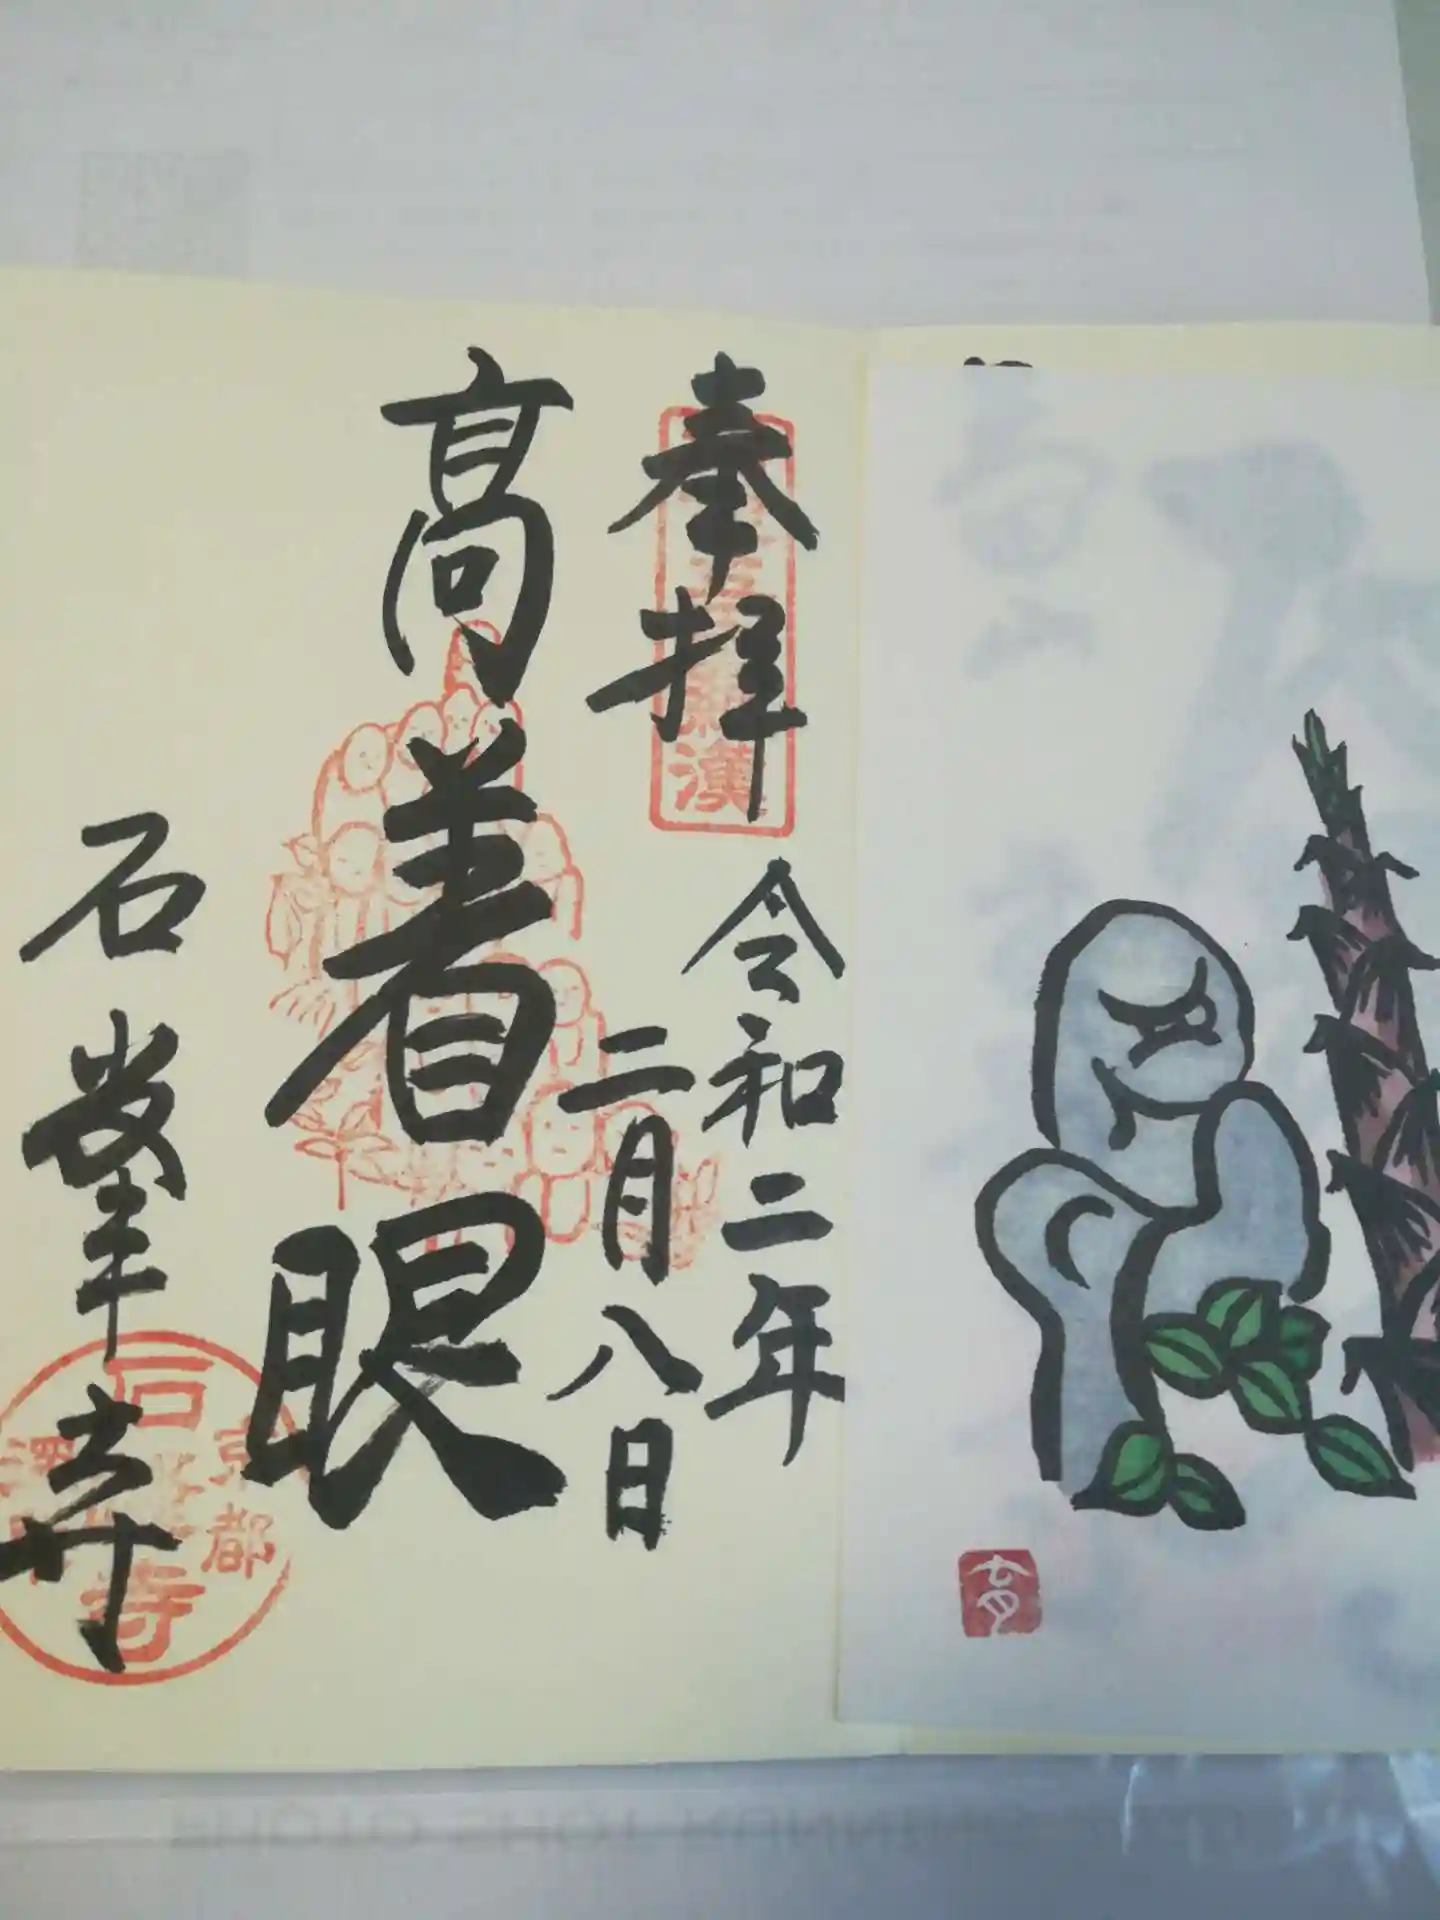 奉拝
令和二年
二月八日
高着眼
石峯寺
羅漢
京都
石峯寺